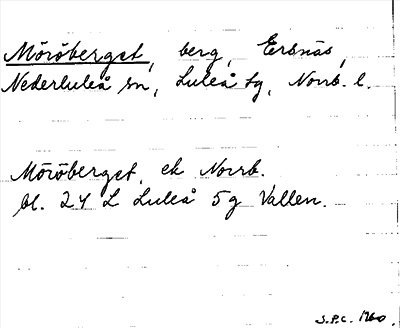 Möröberget, berg, Ersnäs,
Nederluleå sn, Luleå tg, Norrb. l.
Möröberget, ek Norrb.
bl. 24 L Luleå 5g Vallen.
S.P.C. 1960.